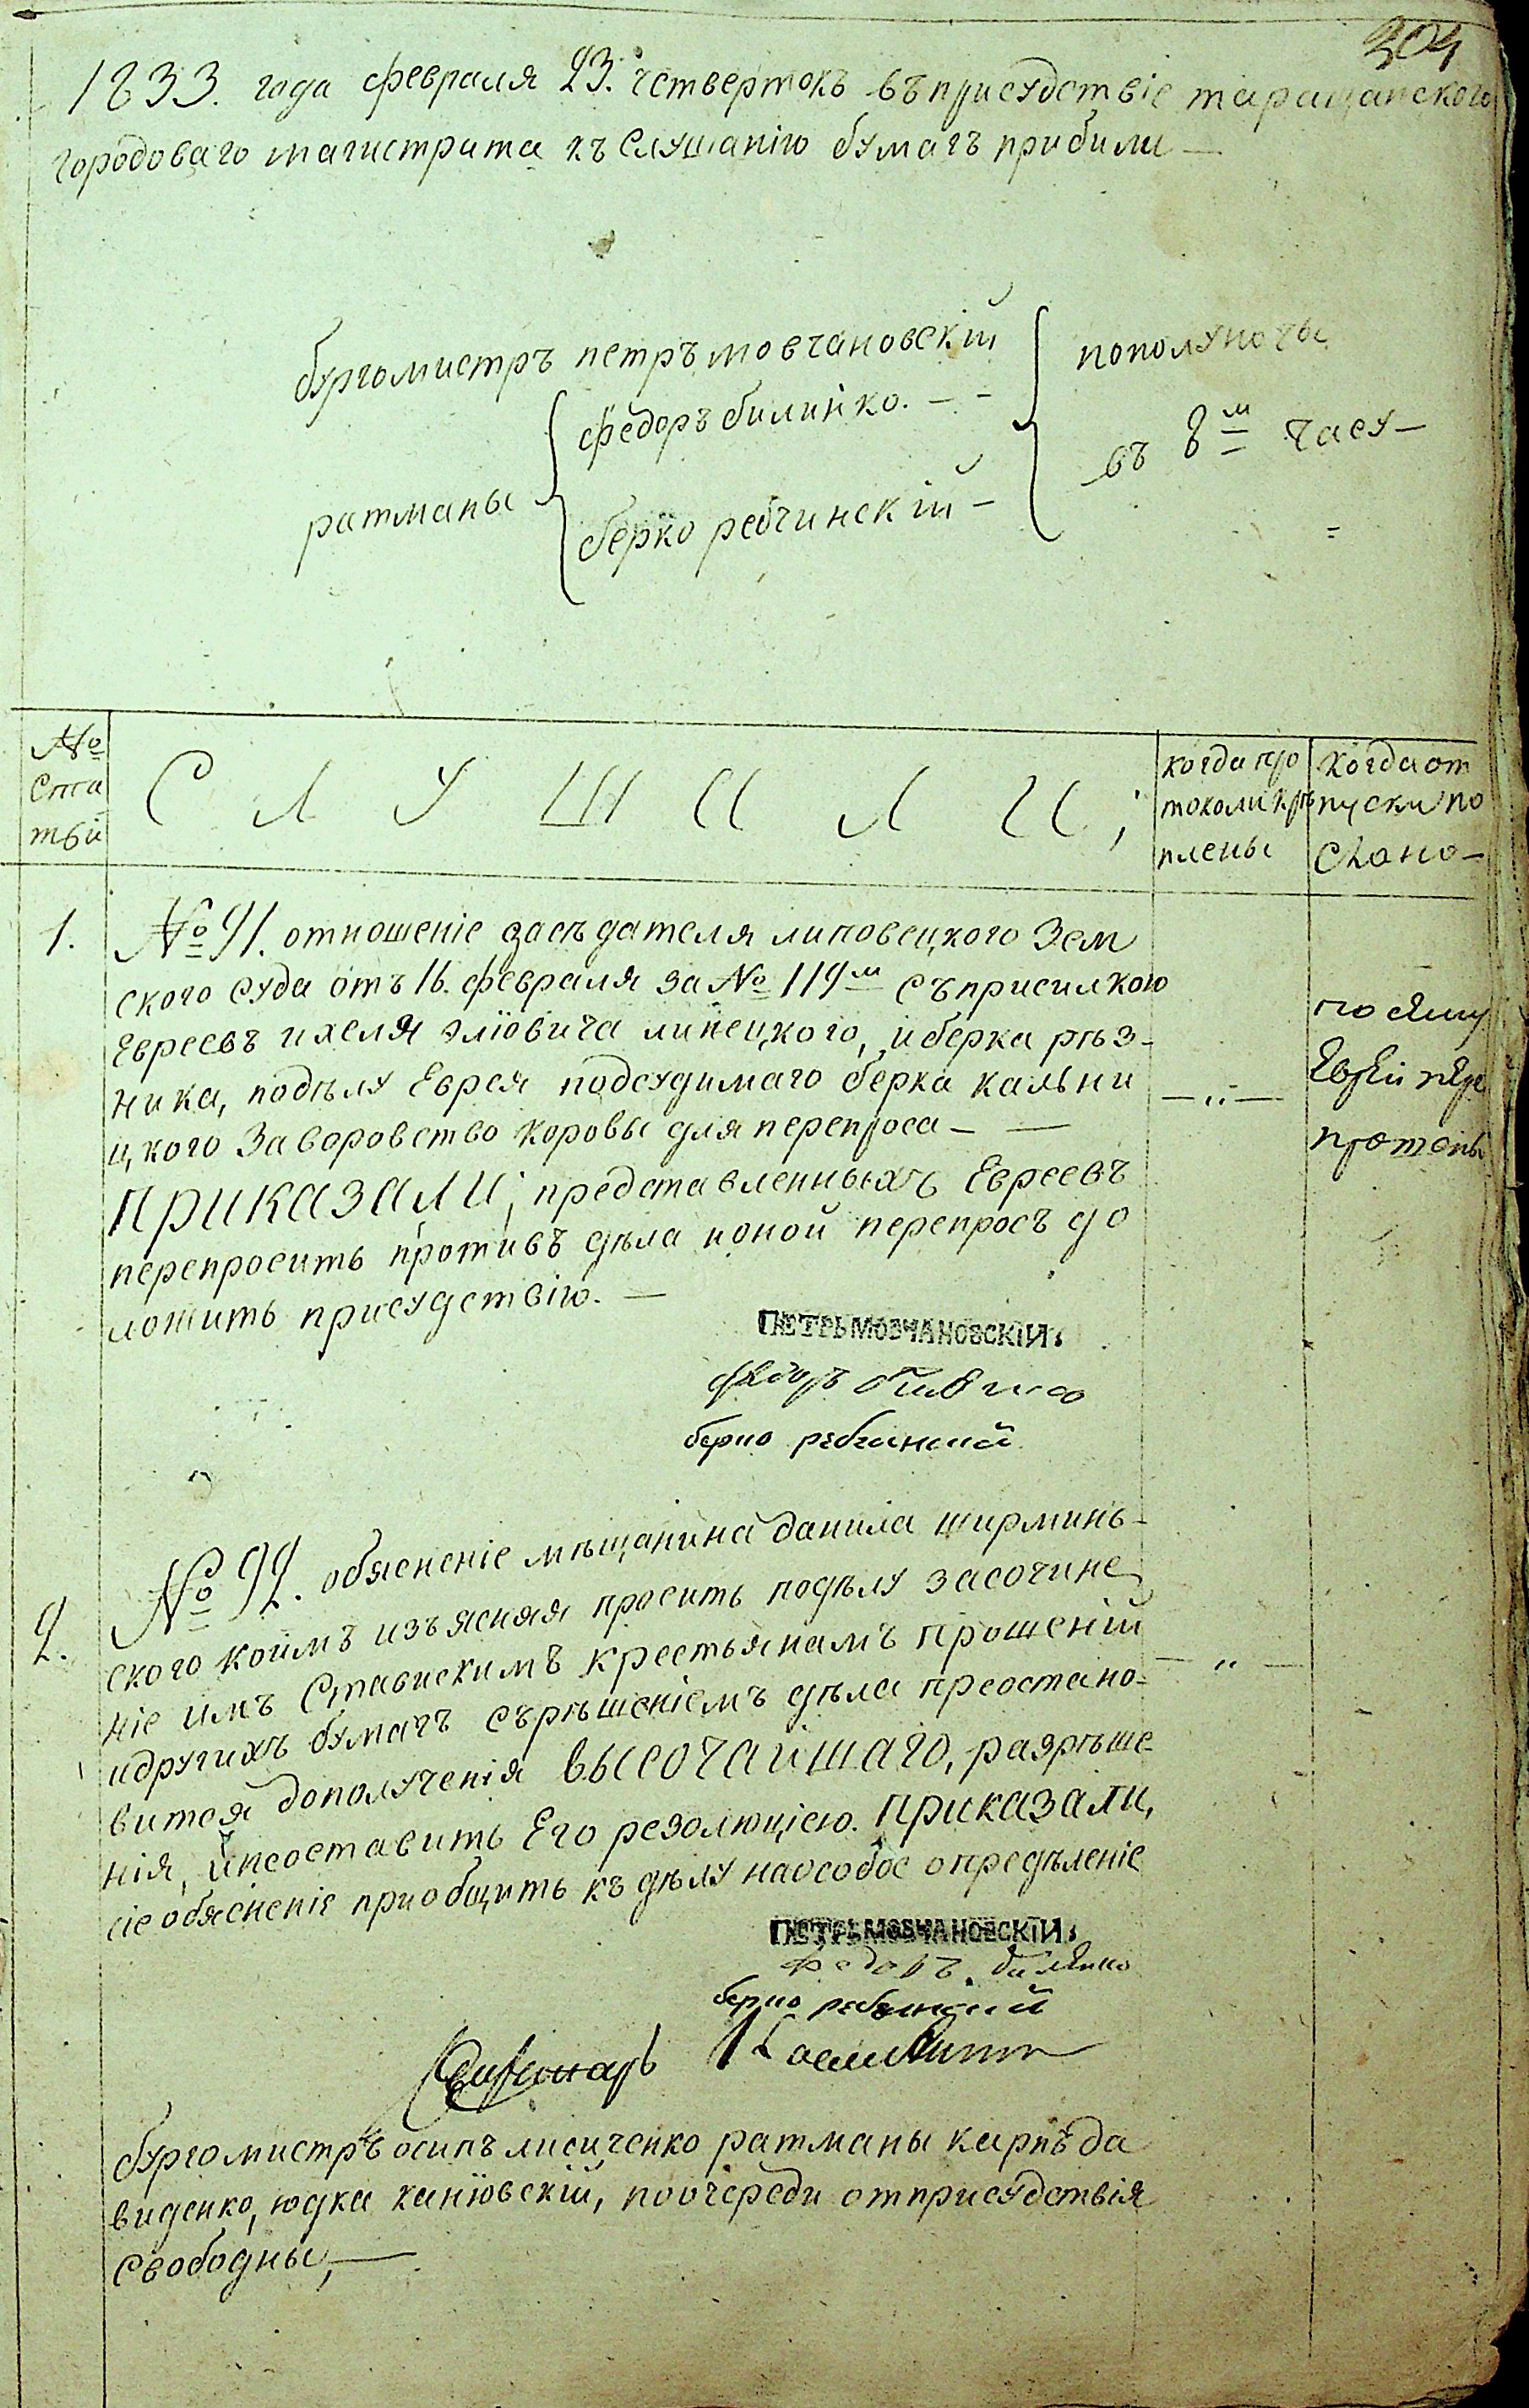 304
1833. года февраля 23. четвертокъ въ присудствіе таращанского
городоваго магистрата къ слушанію бумагъ прибили —
бургомистръ петръ мовчановскій
пополуночы
федоръ билинко. — -
въ 8м часу —
ратманы
берко ребчинскій —
№ Ста тьй
С Л У Ш А Л И;
когда про токоли крѣ плены
когда от пуски по слано —
1. №91. отношеніе засѣдателя липовецкого Зем
ского суда отъ 16. февраля за № 119м съ присилкою
Евреевъ ихеля эліовича липецкого, и берка рѣз-
ника, подѣлу Еврея подсудимаго берка кальни
цкого За воровство коровы для перепроса — —
приказали; представленныхъ Евреевъ
перепросить противъ дѣла и оной перепросъ до
ложить присудствію. —
— „ —
по сему
Еврѣи пере
прошены
ПЕТРЬ МОВЧАНОВСКІИ.
федоръ билинко
берко ребчинский
2. №92. обясненіе мѣщанина данила ширминь-
ского коимъ изъясняя просить подѣлу засочине
ніе имъ Ставискимъ крестьянамъ прошеній
идругихъ бумагъ съ рѣшеніемъ дѣла преостано-
вится дополученія высочайшаго, разрѣше
нія, ипсоставить Его резолюціею. приказали,
сіе обясненіе приобщить къ дѣлу наособое опредѣленіе
— „ —
ПЕТРЬ МОВЧАНОВСКІИ.
федоръ билинко
берко ребчинский
Секретарь
бургомистръ осипъ лисиченко ратманы карпъ да
виденко, юдка каніовскій, поочереди отприсудствія
Свободны, —